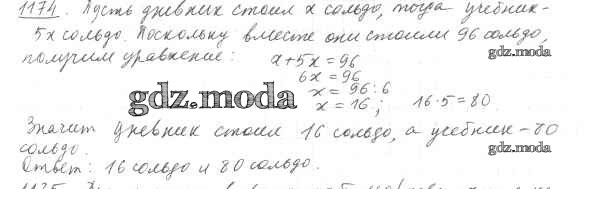 1174. Пусть дневник стоил x сольдо, тогда учебник-
5x сольдо. Поскольку вместе они стоили 96 сольдо,
gdz.moda
получим уравнение: x+5x=96
6x=96
x=96:6
gdz.moda
x=16; 16·5=80.
Значит дневник стоил 16 сольдо, а учебник-80
сольдо.
gdz.moda
Ответ: 16 сольдо и 80 сольдо.